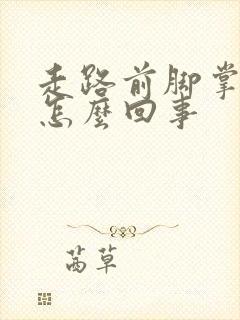 走路前脚掌
怎麼回事
茜草